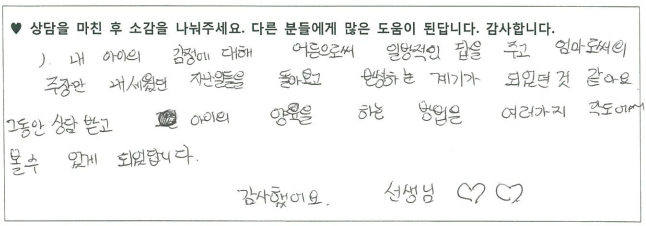 ♥ 상담을 마친 후 소감을 나눠주세요. 다른 분들에게 많은 도움이 된답니다. 감사합니다.
). 내 아이의 감정에 대해 어른으로써 일방적인 답을 주고 엄마로써의
주장만 내세웠던 지난일들을 돌아보고 반성하는 계기가 되었던 것 같아요
그동안 상담 받고 아이의 양육을 하는 방법을 여러가지 각도에서
볼수 있게 되었답니다.
감사했어요. 선생님 ♡ ♡